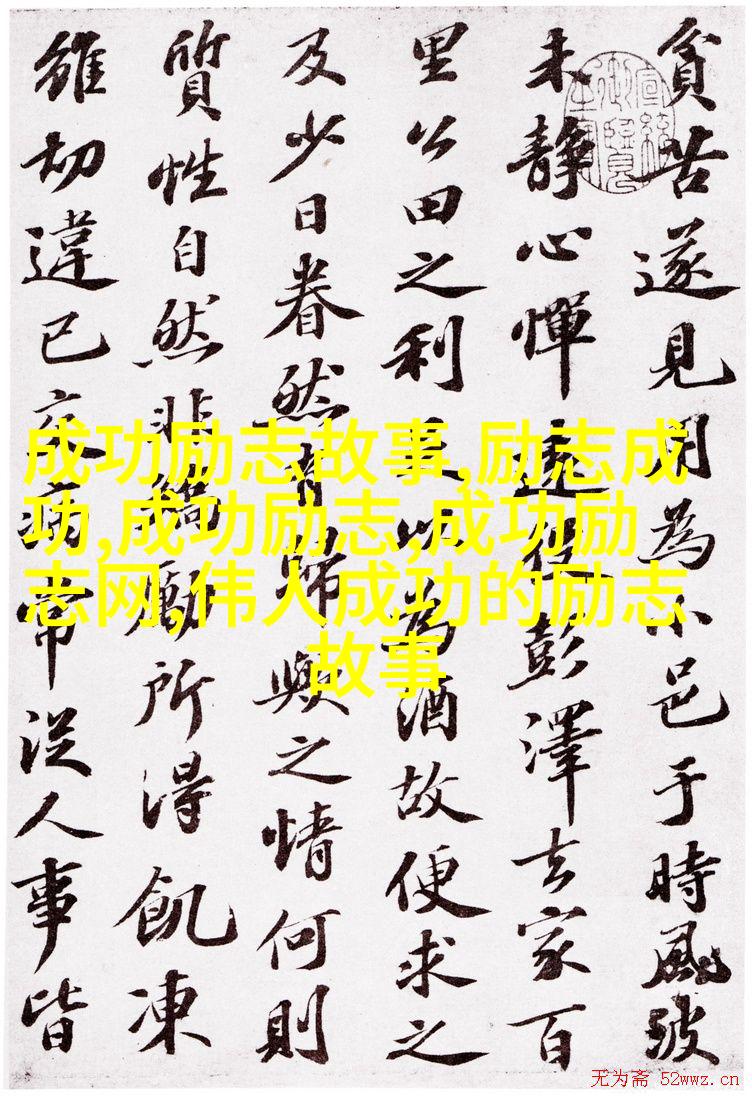 貧苦遂見用為小邑于時風波
未靜心憚遠役彭澤去家百
里公田之利足以為酒故便求之
及少日眷然有歸歟之情何則
質性自然非矯勵所得飢凍
雖切違已交病常從人事皆
成功励志故事,励志成
功,成功励志,成功励
志网,伟人成功的励志
故事
无为斋 52wwz.cn